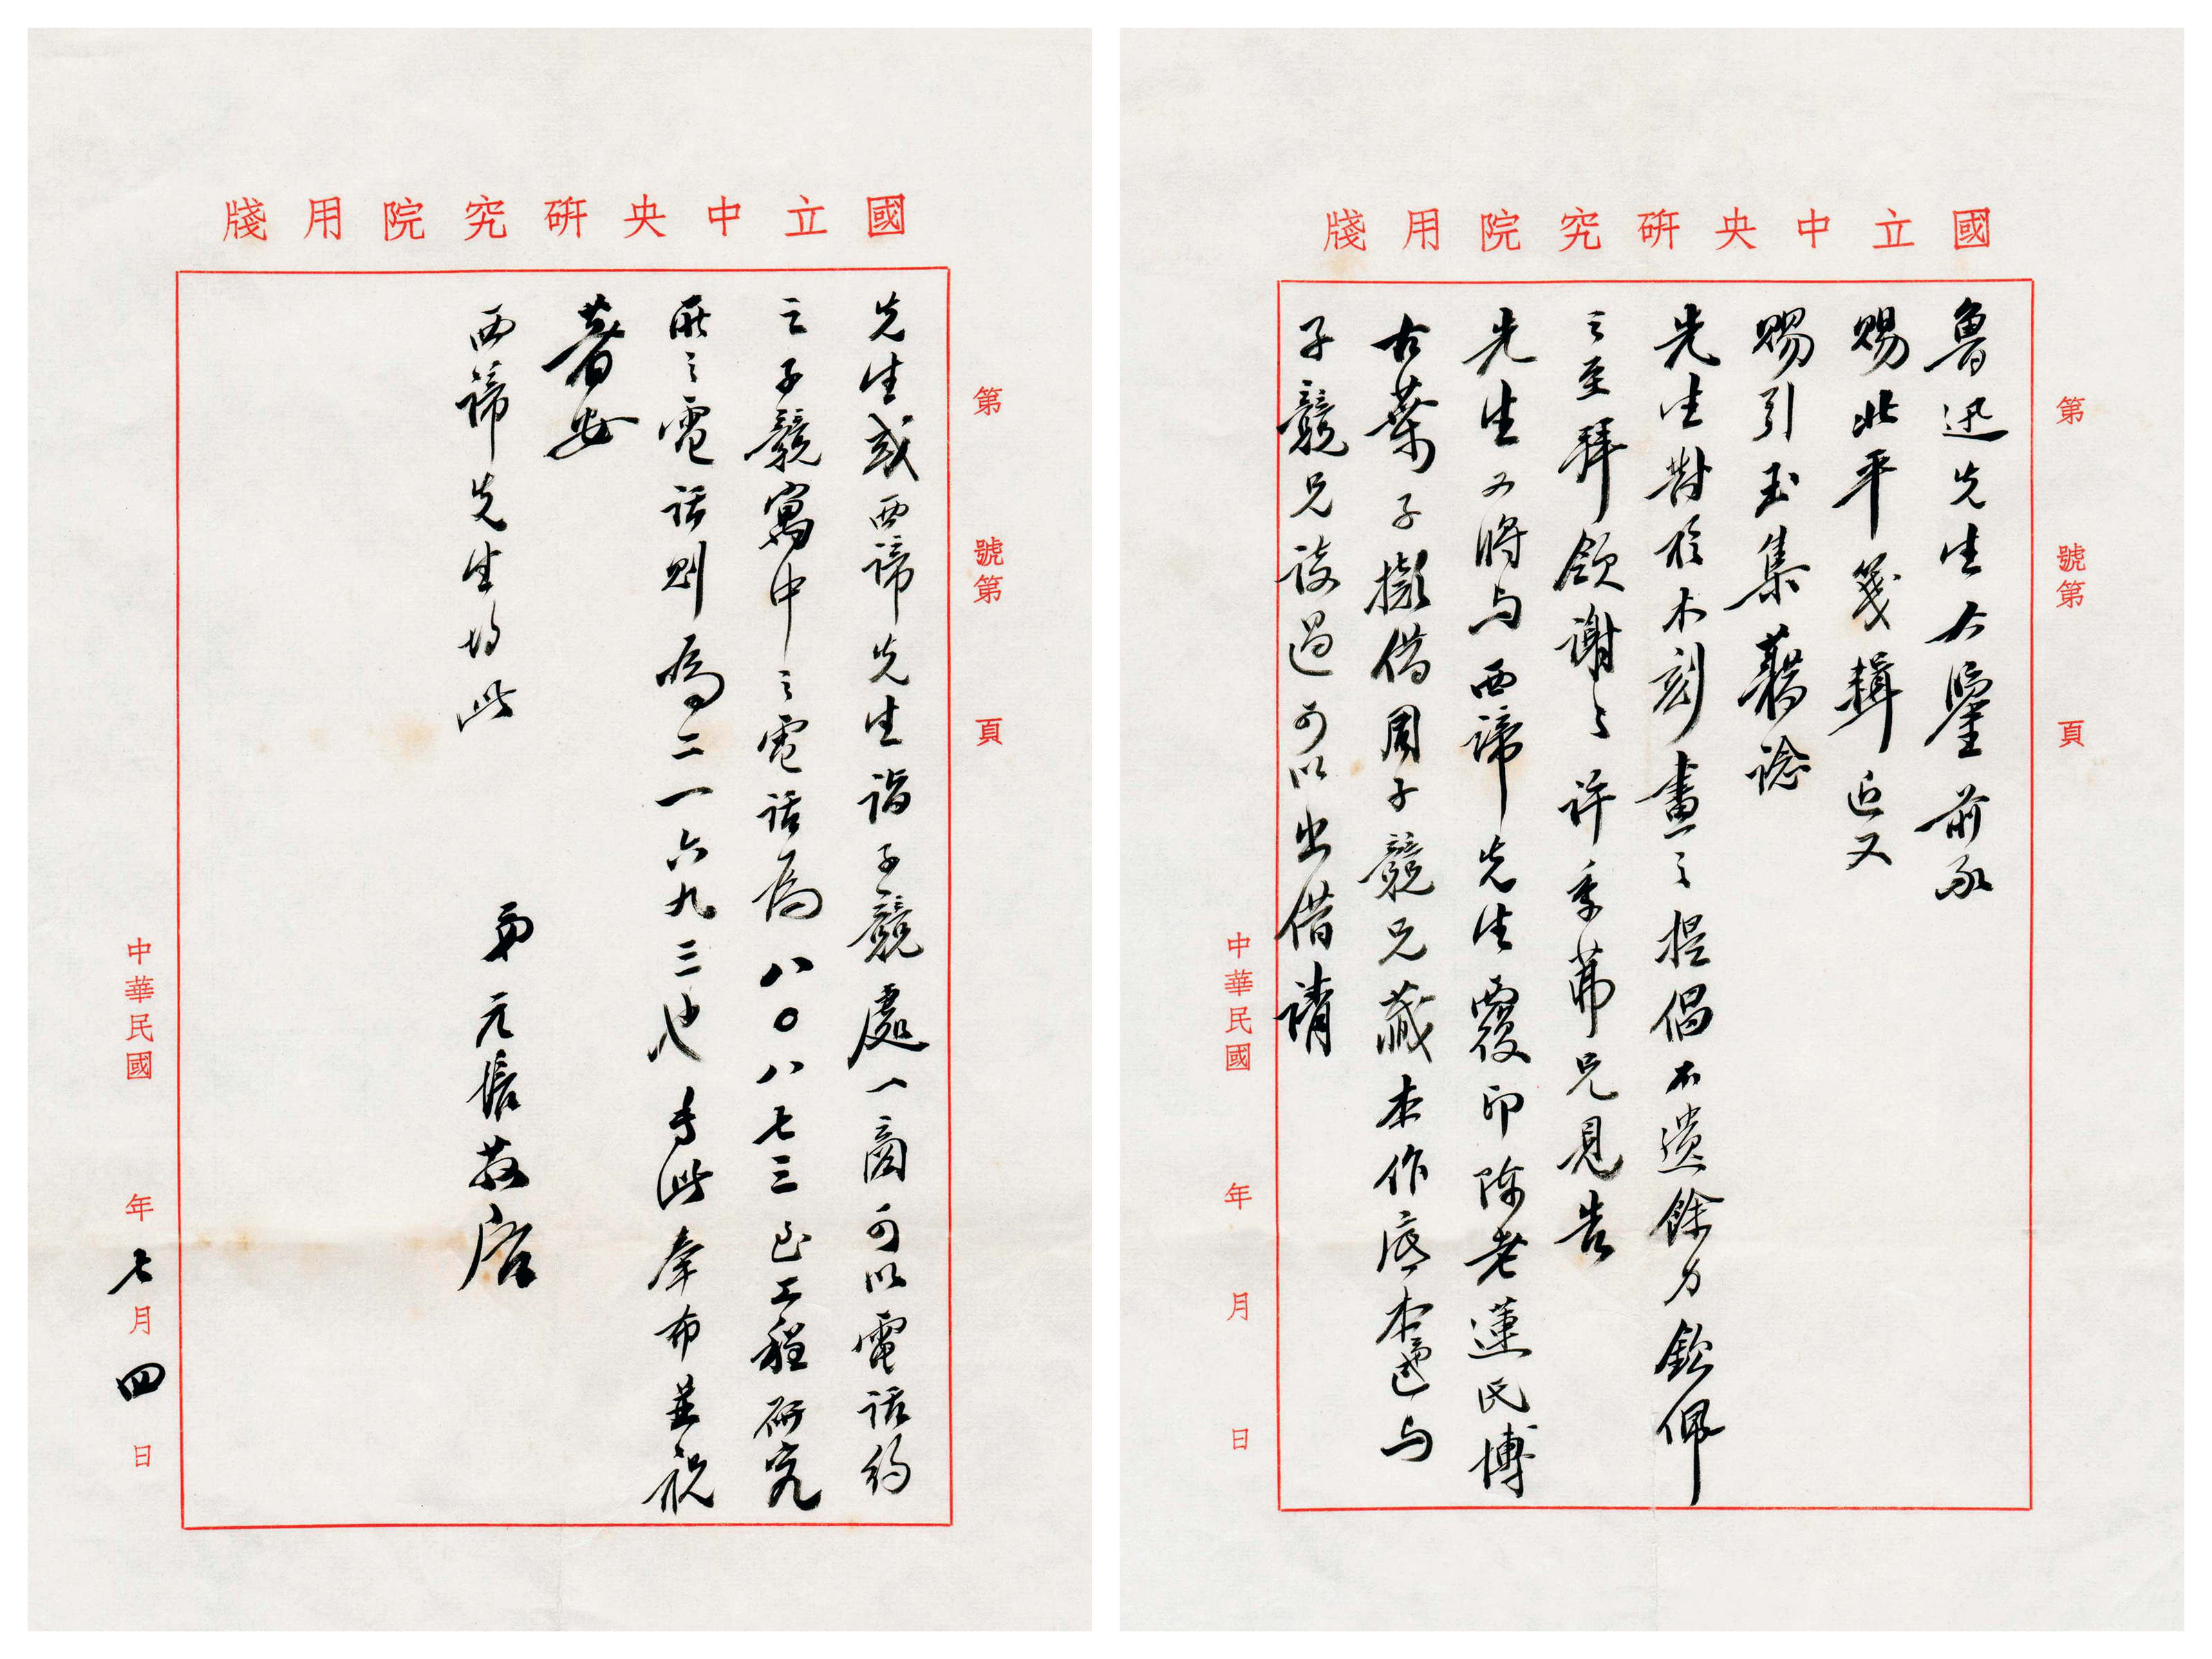 國立中央研究院用牋
第 號第 頁
魯迅先生大鑒前承
賜北平箋譜近又
賜引玉集藉諗
先生對於木刻畫之提倡不遺餘力欽佩
之至拜領謝〻許季茀兄見告
先生又將与西諦先生覆印陳老蓮氏博
古葉子擬借周子競兄藏本作底本適与
子競兄談過可以出借請
中華民國 年 月 日
國立中央研究院用牋
第 號第 頁
先生或西諦先生詣子競處一商可以電話約
之子競寓中之電話為八〇八七三至工程研究
所之電話則為二一六九三也專此奉布並祝
著安
西諦先生均此
弟元培敬启
中華民國 年七月四日